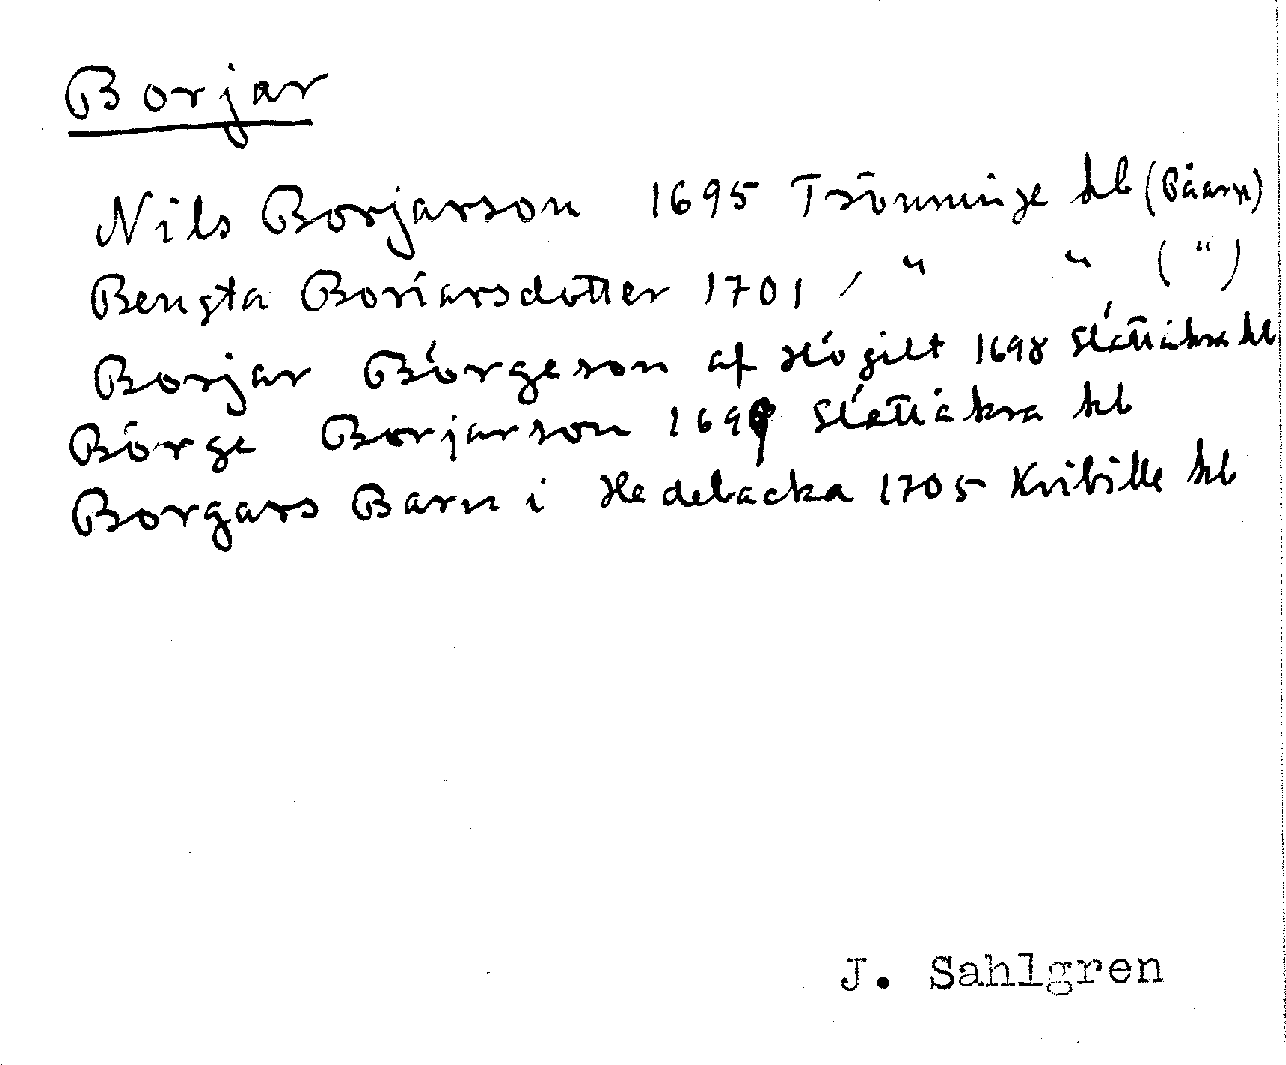 Borjar
Nils Borjarson 1695 Trönninge kb (Påarp)
Bengta Boriarsdotter 1701 / " " ( " )
Borjar Börgeson af Högilt 1698 Slättåkra kb
Börge Borjarson 1699 Slättåkra kb
Borgars Barn i Hedebacka 1705 Kvibille kb
J. Sahlgren